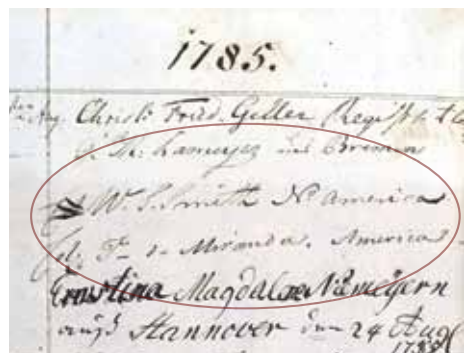 1785.
Aug. Christ: Fried. Geller Regist
Lameyer aus Bremen
W. S. Smith N. America
F de Miranda. America
Ernstina Magdalena Niemeyern
auß Hannover den 24 Aug
1785